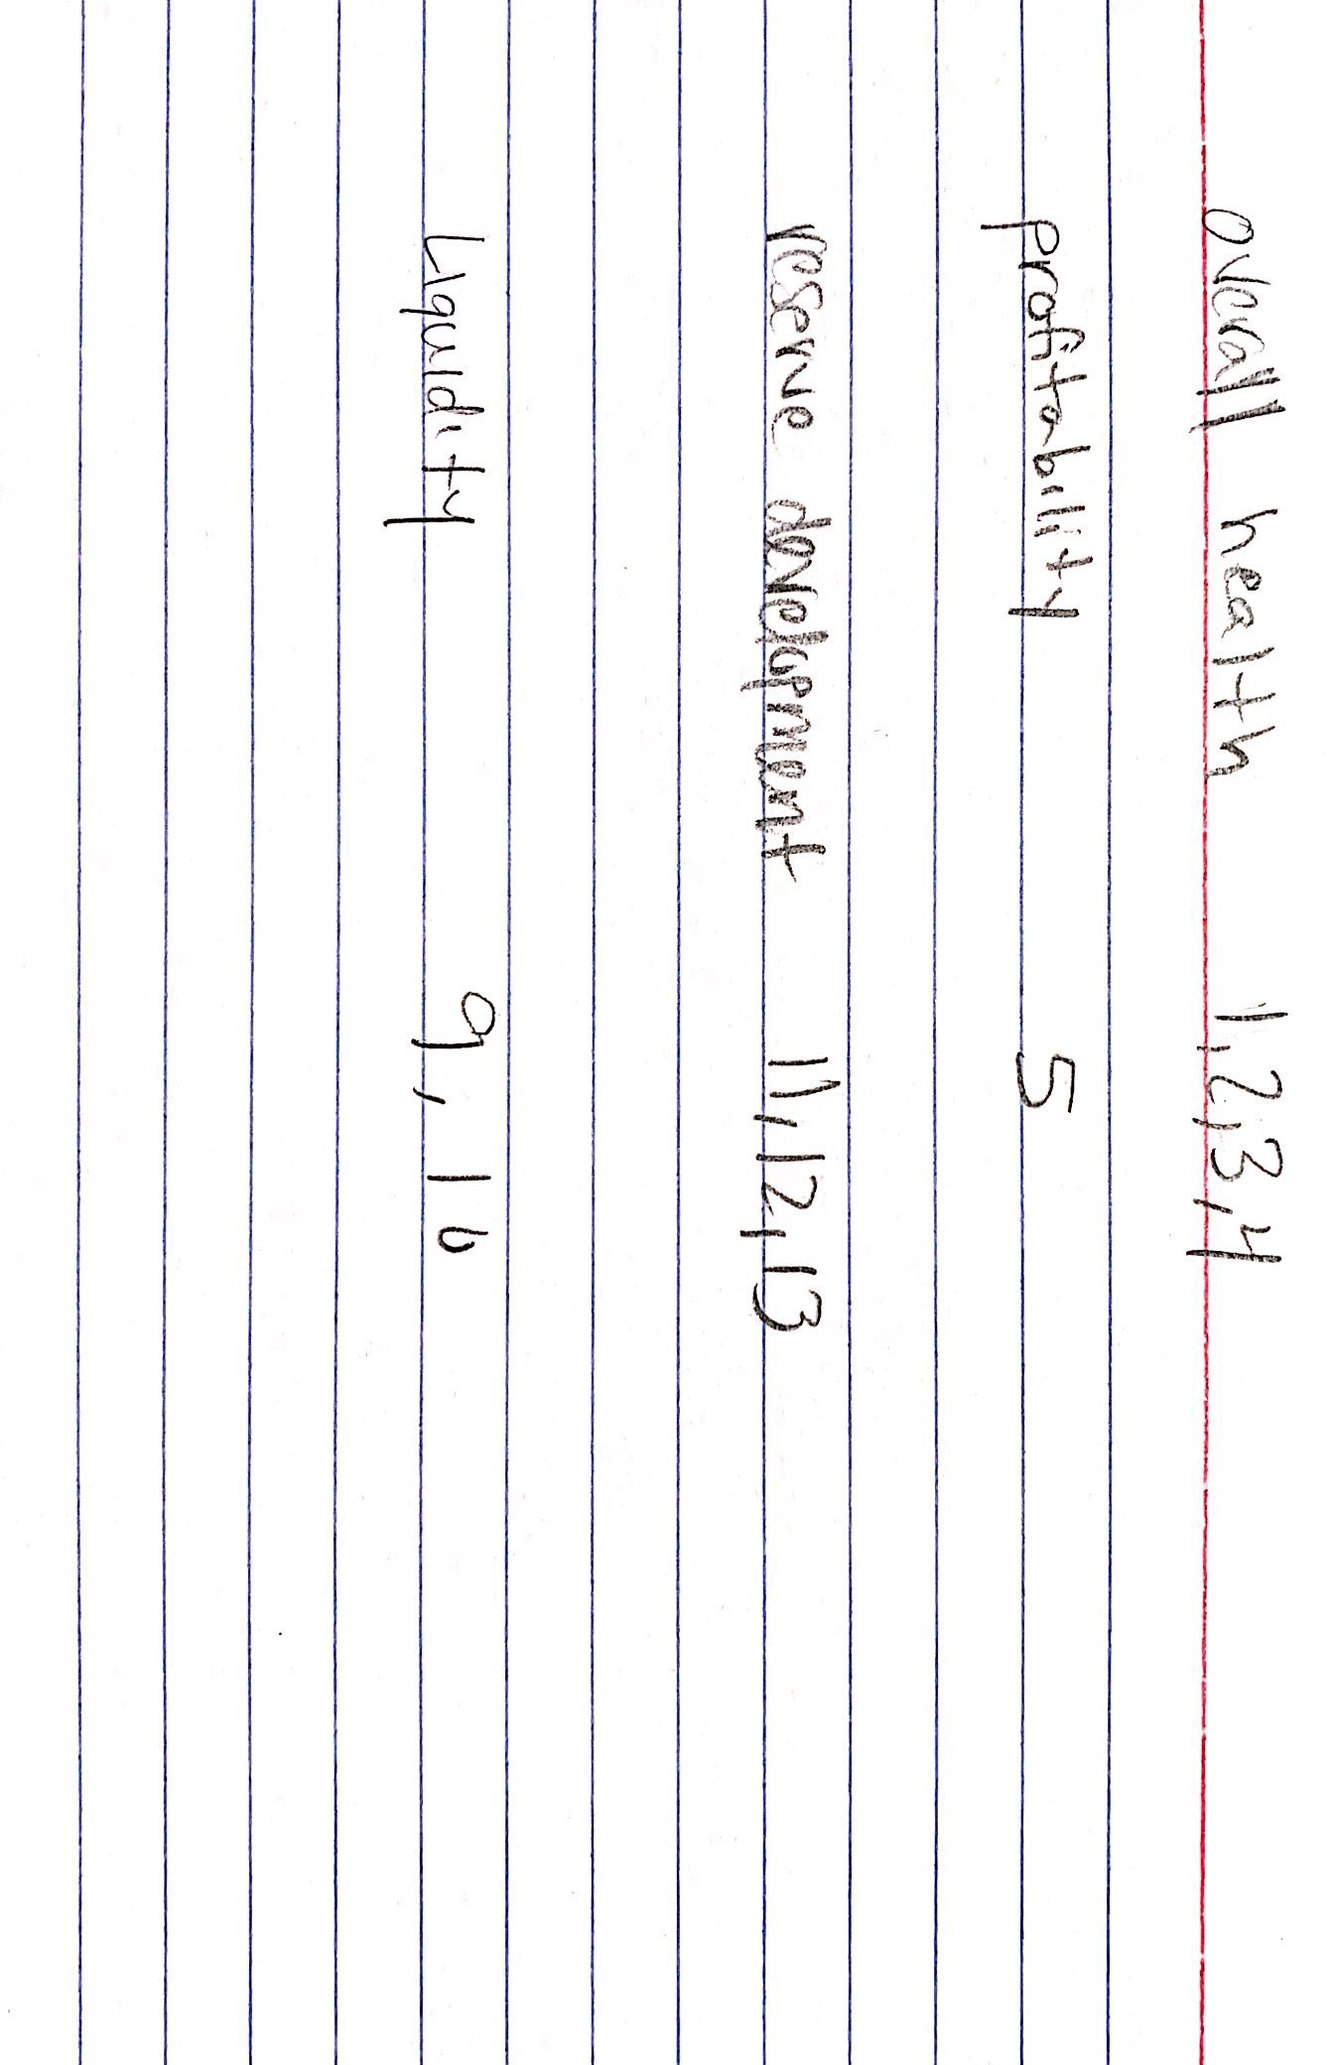 overall health 1,2,3,4
profitability 5
reserve development 11,12,13
Liquidity 9, 16